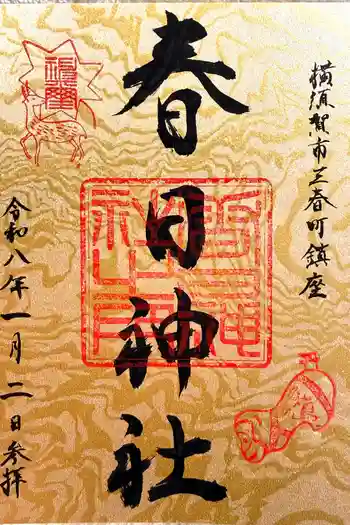 横須賀市三春町鎮座
春日神社
令和八年一月二日参拝